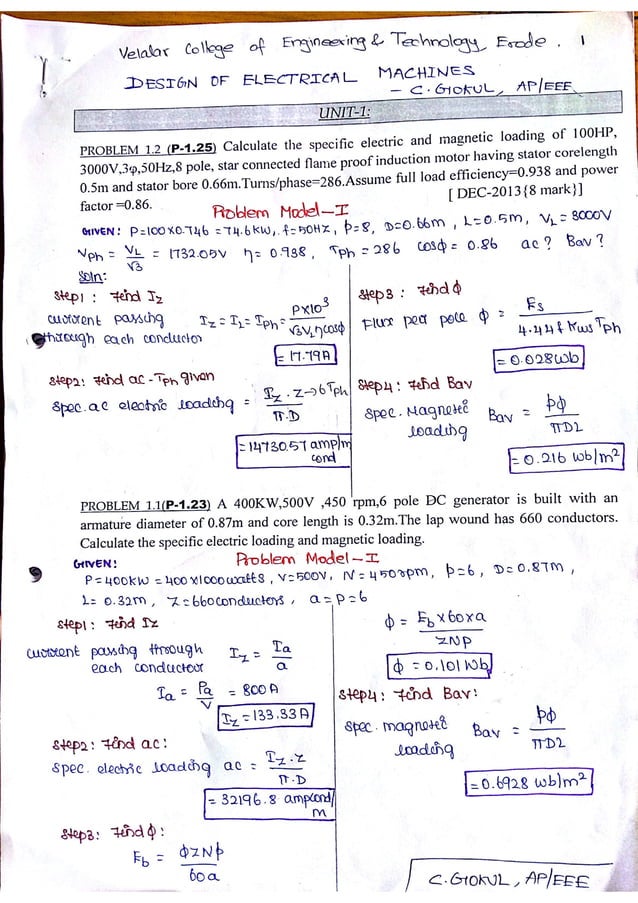 Velalar College of Engineering & Technology, Erode. 1
DESIGN OF ELECTRICAL MACHINES
- C. GOKUL, AP/EEE
UNIT-1:
PROBLEM 1.2 (P-1.25) Calculate the specific electric and magnetic loading of 100HP,
3000V,3φ,50Hz,8 pole, star connected flame proof induction motor having stator corelength
0.5m and stator bore 0.66m.Turns/phase=286.Assume full load efficiency=0.938 and power
factor =0.86.
[ DEC-2013{8 mark}]
Problem Model-I
GIVEN: P=100x0.746 = 74.6kW, f=50Hz, p=8, D=0.66m, L=0.5m, VL=3000V
Vph = VL/√3 = 1732.05V η=0.938, Tph = 286 cosϕ = 0.86 ac? Bav?
Soln:
Step1: Find Iz
current passing through each conductor Iz = IL = Iph = Px10³/√3VLηcosϕ
= 17.79A
Step2: Find ac - Tph given
Spec. ac electric loading = Iz.Z→6Tph/π.D
= 14730.57 amp/m cond
Step3: Find ϕ
Flux per pole ϕ = Es/4.44f Kws Tph
= 0.028wb
Step4: Find Bav
Spec. Magnetic loading Bav = pϕ/πDL
= 0.216 wb/m²
PROBLEM 1.1(P-1.23) A 400KW,500V ,450 rpm,6 pole DC generator is built with an
armature diameter of 0.87m and core length is 0.32m.The lap wound has 660 conductors.
Calculate the specific electric loading and magnetic loading.
Problem Model-I
GIVEN:
P=400kW = 400x1000watts, V=500V, N=450rpm, p=6, D=0.87m,
L= 0.32m, Z=660conductors, a=p=6
Step1: Find Iz
current passing through each conductor Iz = Ia/a
Ia = Pa/V = 800A
Iz = 133.33A
Step2: Find ac:
Spec. electric loading ac = Iz.Z/π.D
= 32196.8 ampcond/m
Step3: Find ϕ:
Eb = ϕZNp/60a
ϕ = Eb x60xa/ZNP
ϕ = 0.101Wb
Step4: Find Bav:
Spec. magnetic loading Bav = pϕ/πDL
= 0.6928 wb/m²
C. GOKUL, AP/EEE